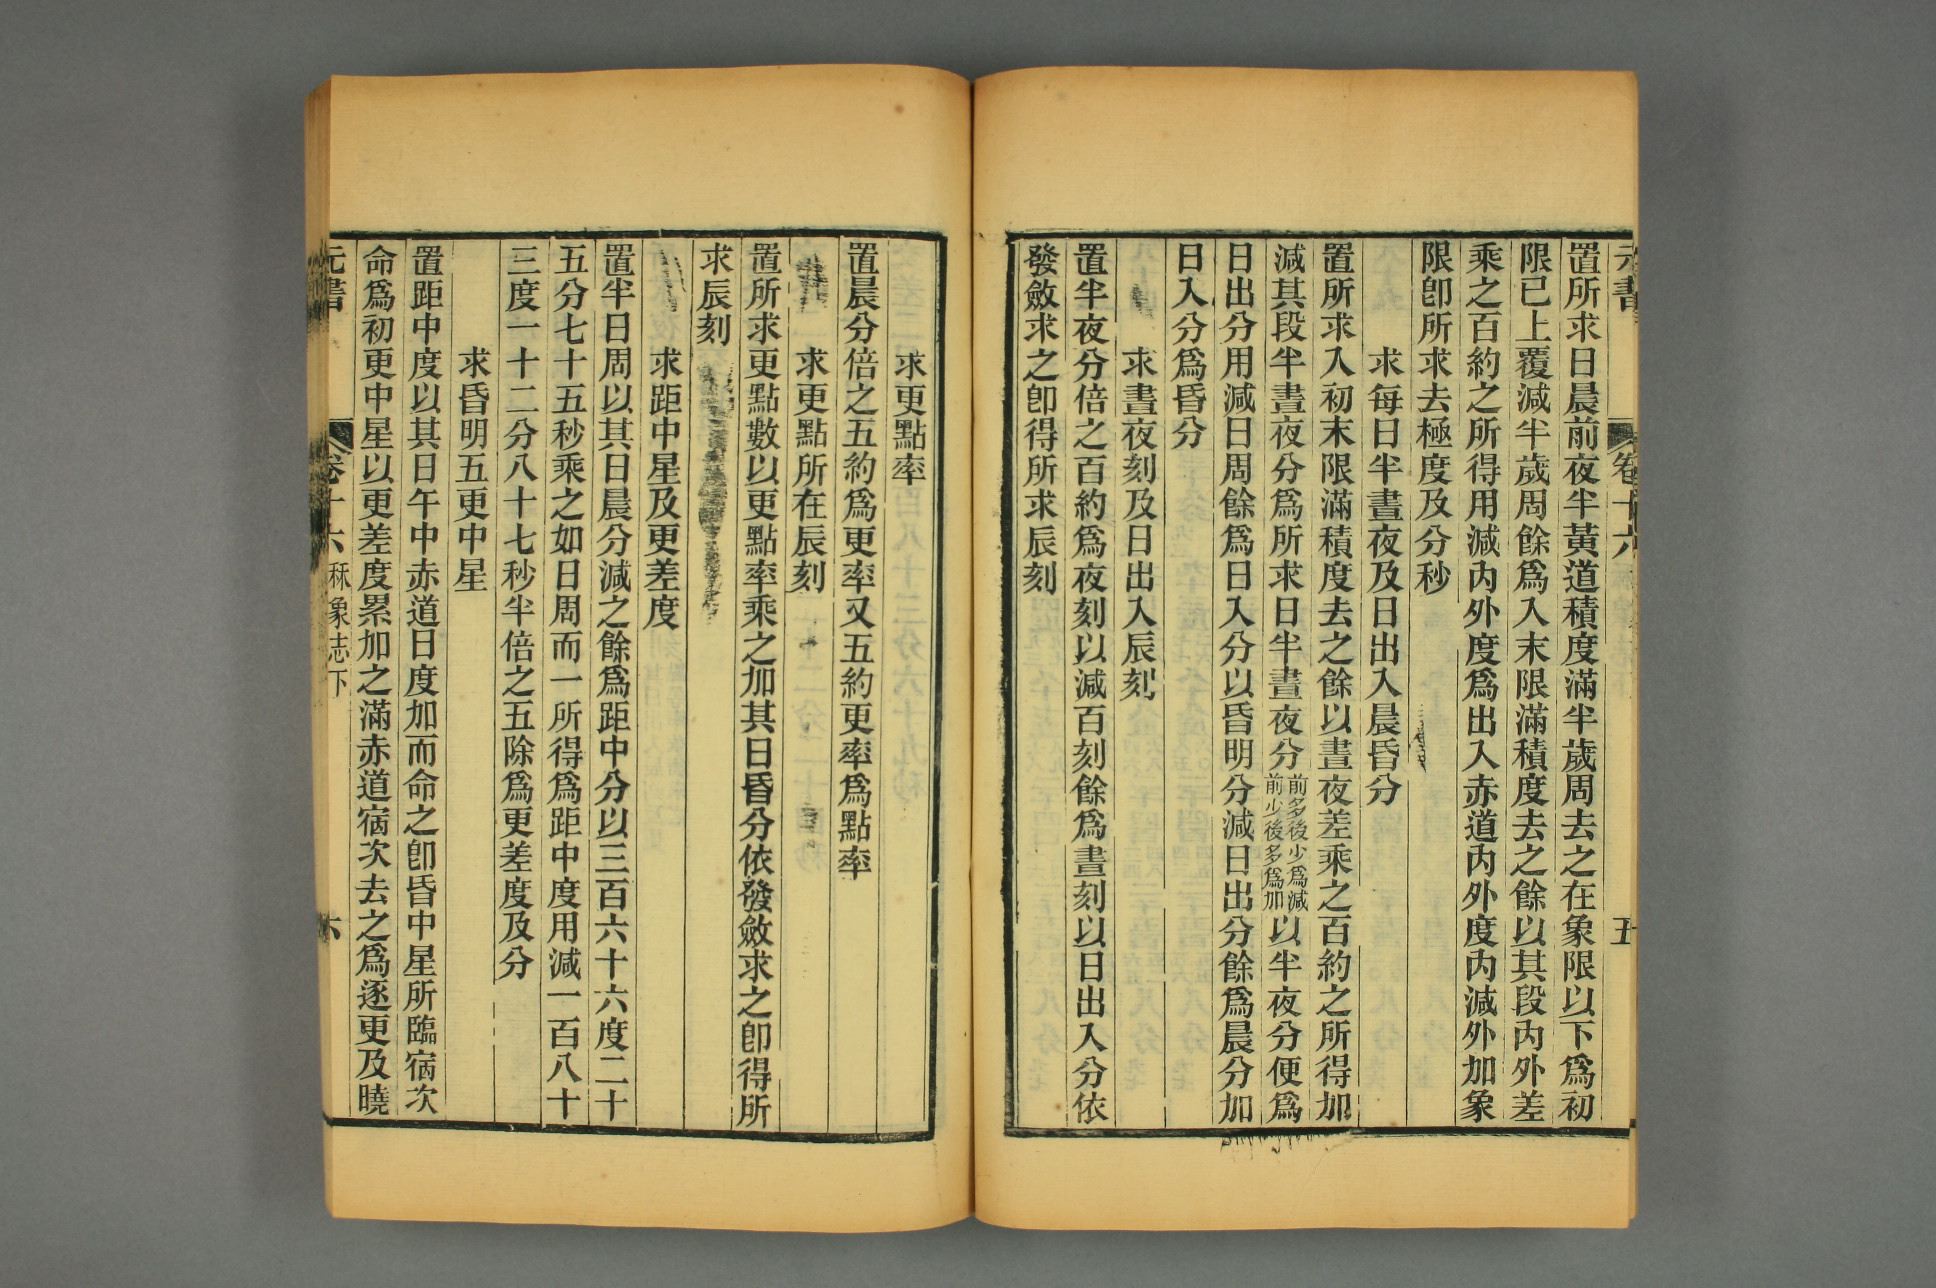 元書 卷十六 五
置所求日晨前夜半黃道積度滿半歲周去之在象限以下爲初
限已上覆減半歲周餘爲入末限滿積度去之餘以其段內外差
乘之百約之所得用減內外度爲出入赤道內外度內減外加象
限卽所求去極度及分秒
求每日半晝夜及日出入晨昏分
置所求入初末限滿積度去之餘以晝夜差乘之百約之所得加
減其段半晝夜分爲所求日半晝夜分前多後少爲減前少後多爲加以半夜分便爲
日出分用減日周餘爲日入分以昏明分減日出分餘爲晨分加
日入分爲昏分
求晝夜刻及日出入辰刻
置半夜分倍之百約爲夜刻以減百刻餘爲晝刻以日出入分依
發斂求之卽得所求辰刻
求更點率
置晨分倍之五約爲更率又五約更率爲點率
求更點所在辰刻
置所求更點數以更點率乘之加其日昏分依發斂求之卽得所
求辰刻
求距中星及更差度
置半日周以其日晨分減之餘爲距中分以三百六十六度二十
五分七十五秒乘之如日周而一所得爲距中度用減一百八十
三度一十二分八十七秒半倍之五除爲更差度及分
求昏明五更中星
置距中度以其日午中赤道日度加而命之卽昏中星所臨宿次
命爲初更中星以更差度累加之滿赤道宿次去之爲逐更及曉
元書 卷十六 秝象志下 六